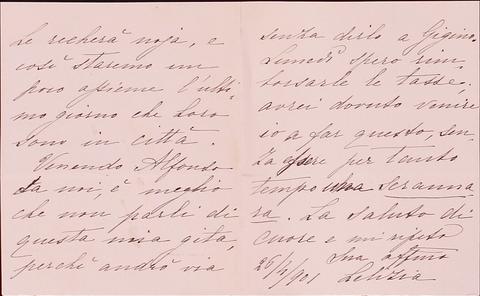 Le recherà noja, e
così staremo un
poco assieme l'ulti-
mo giorno che Loro
sono in città.
Venendo Alfonso
da noi, è meglio
che non parli di
questa mia gita,
perchè andrò via
senza dirlo a Gigino.
Lunedì spero rim-
borsarle le tasse;
avrei dovuto venire
io a far questo, sen-
za essere per tanto
tempo una seranna
ra. La saluto di
cuore e mi ripeto
Sua affma
Letizia
26/4/901